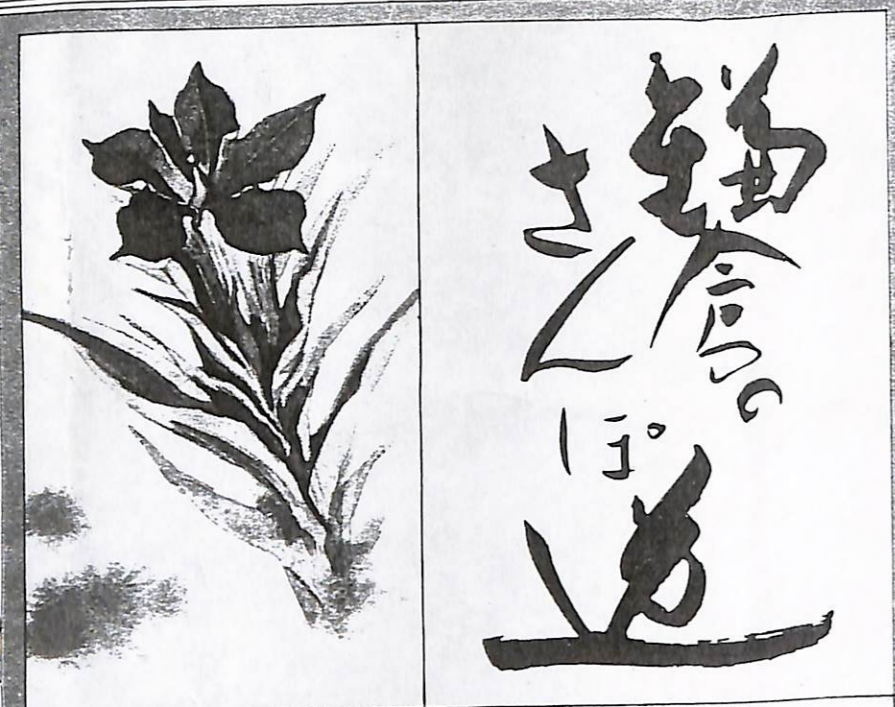 鎌倉の
さんぽ道